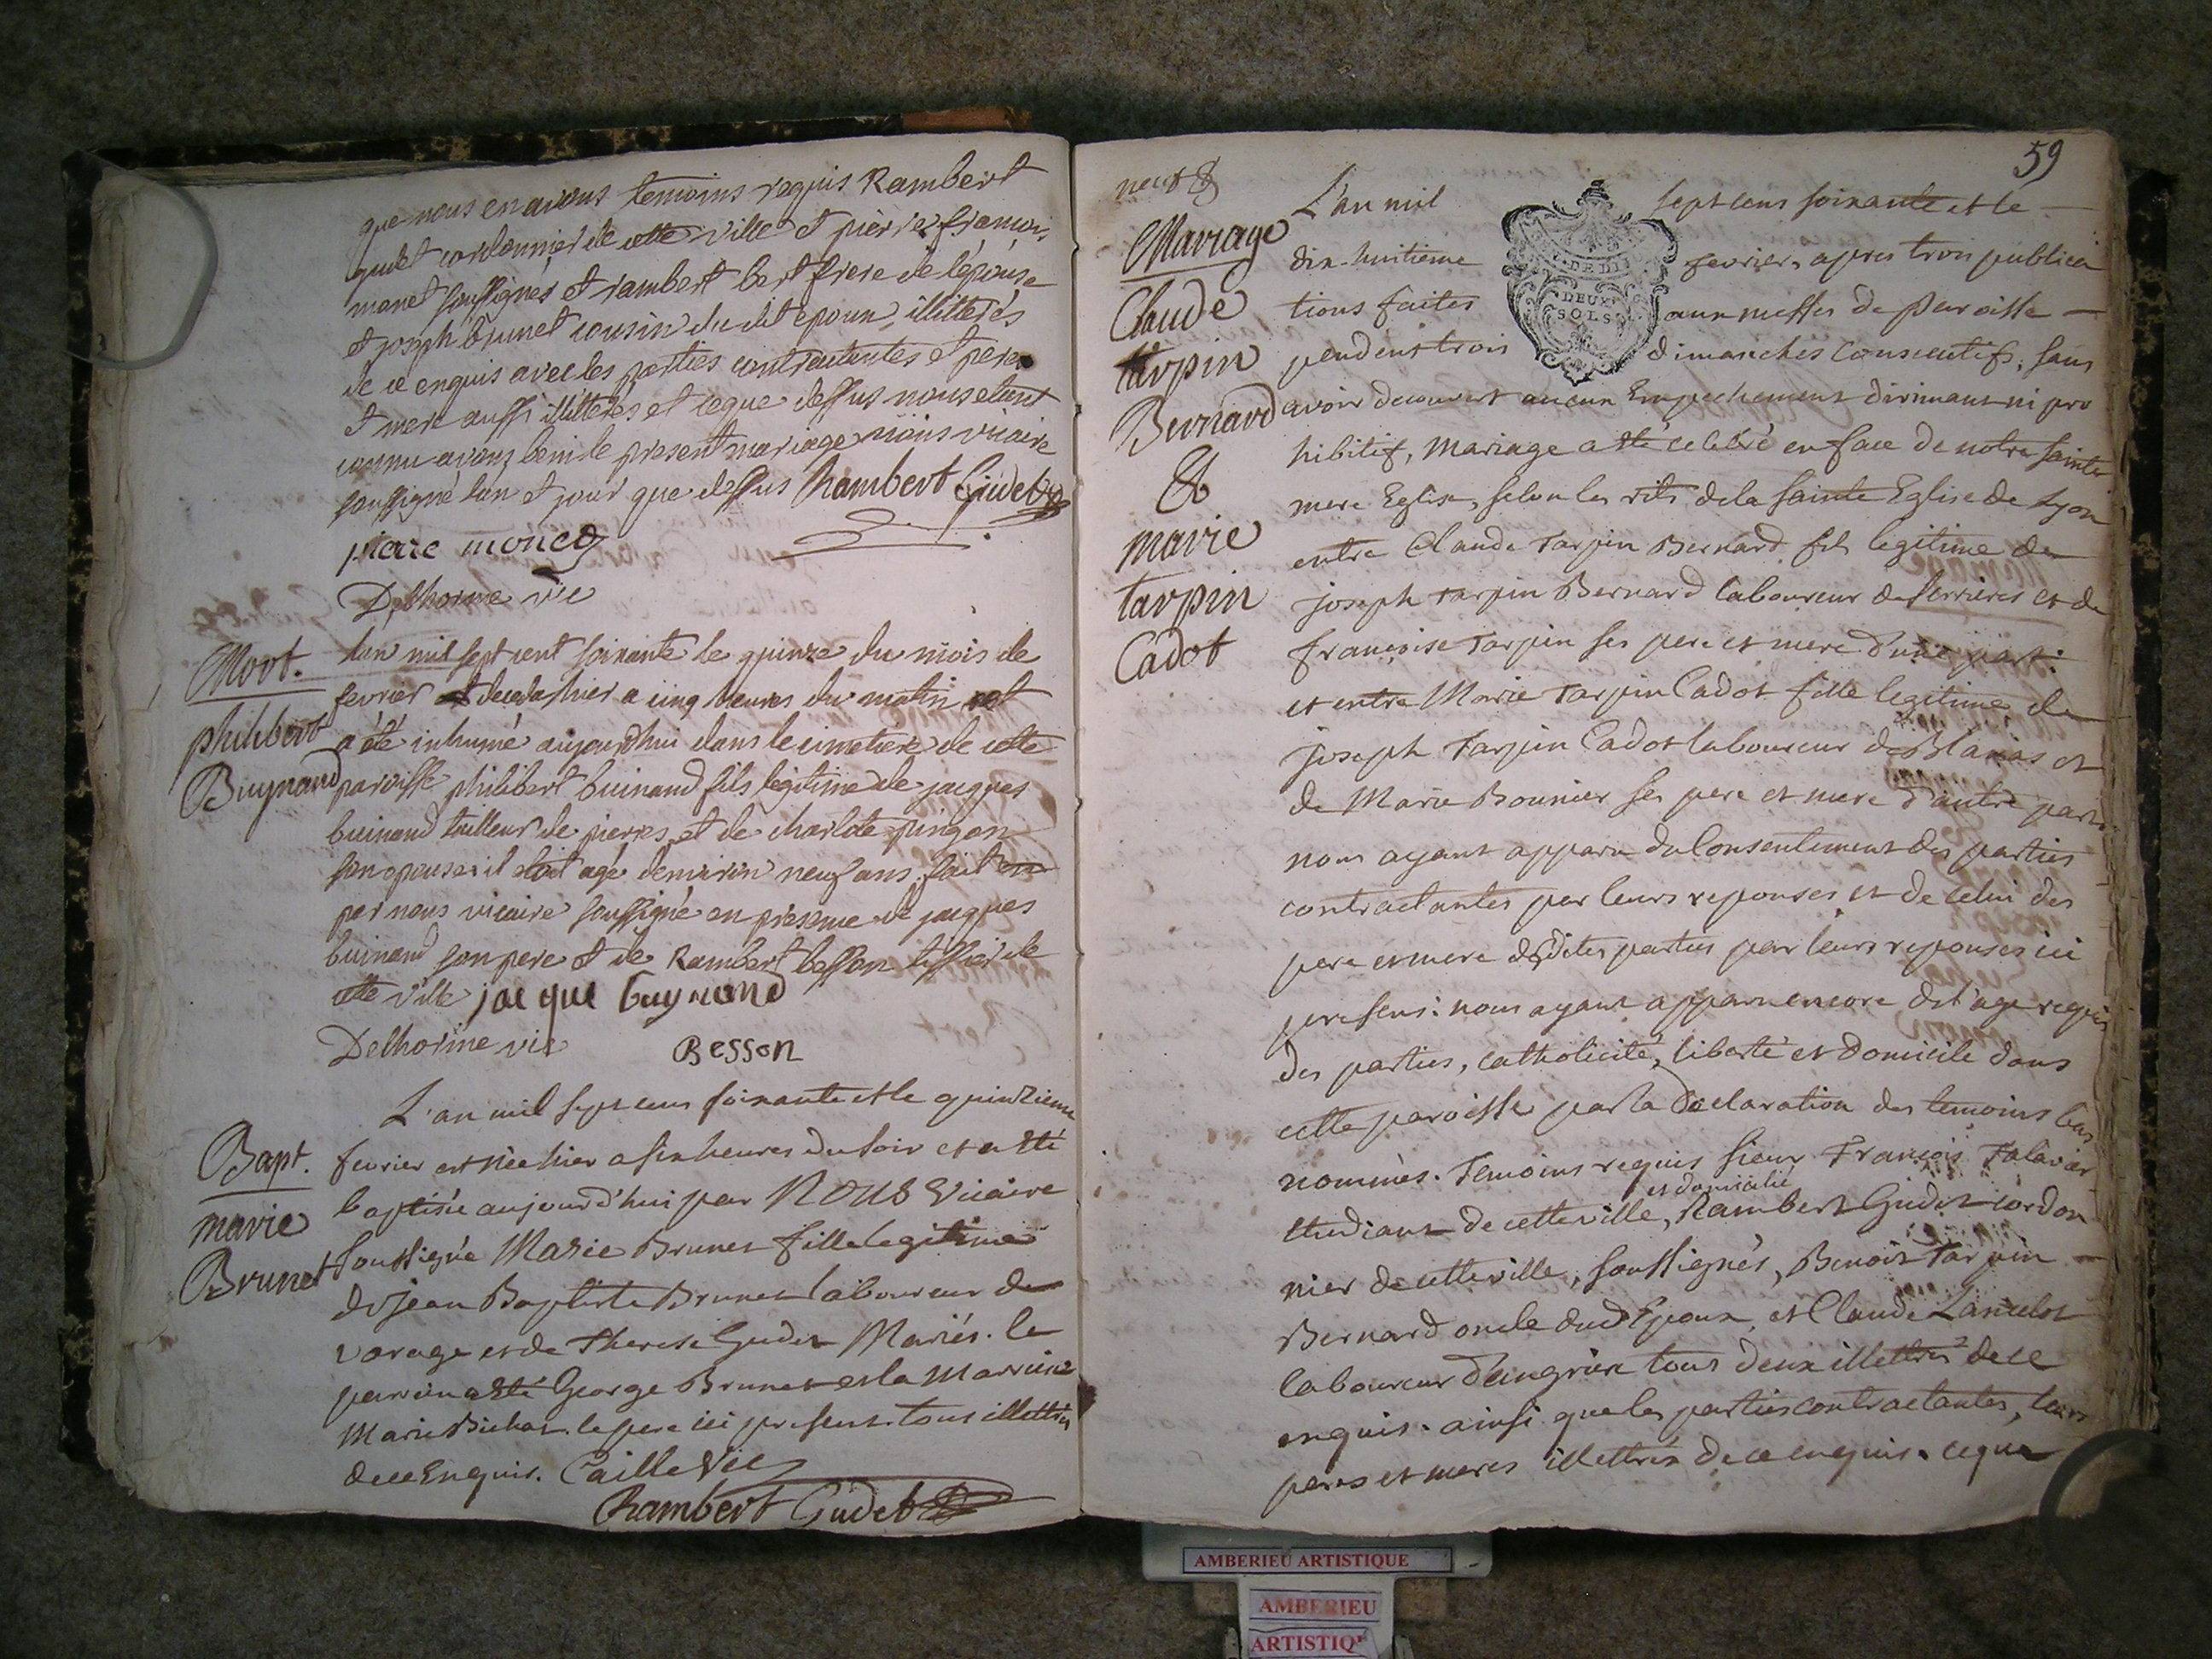 que nous en avons temoins requis Rambert
gudet cordonnier de cette ville et pierre françois
monet soussignés et rambert bert frere de l'épouse
et joseph brunet cousin du dit epoux, illitterés
de ce enquis avec les parties contractantes et pere
et mere aussi illitterés et ceque dessus nous etant
connu avons beni le present mariage nous vicaire
soussigné l'an et jour que dessus Rambert Gudet
pierre monet
Delhorme vic
Mort.
philibert
Buynand
lan mil sept cent soixante le quinze du mois de
fevrier et decedes hier a cinq heures du matin et
a été inhumé aujourdhui dans le cimetiere de cette
paroisse philibert buinand fils legitime de jacques
buinand tailleur de pierres et de charlote pingon
son epouse il etoit agé denviron neuf ans. fait
par nous vicaire soussigné en presence de jacques
buinand son pere et de Rambert besson tissier de
cette ville jacque buynand
Delhorme vic Besson
Bapt.
marie
Brunet
L'an mil sept cens soixante et le quinzieme
fevrier est née hier a six heures du soir et a été
baptisée aujourd'hui par NOUS Vicaire
soussigné Marie Brunet fille legitime
de jean Baptiste Brunet laboureur de
vorage et de Therese Gudet Mariés. le
parrain a été George Brunet et la Marraine
Marie Bichat. le pere ici present. tous illettrés
de ce Enquis. Caille Vic
Rambert Gudet
59
neuf
Mariage
Claude
tarpin
Bernard
&
marie
tarpin
Cadot
L'an mil sept cens soixante et le
dix-huitieme fevrier, apres trois publica
tions faites aux messes de Paroisse
pendent trois dimanches Consecutifs, sans
avoir decouvert aucun Empechement dirimant ni pro
hibitif, mariage a été celebré en face de notre sainte
mere Eglise, selon les rits de la Sainte Eglise de Lyon
entre Claude Tarpin Bernard fils legitime de
joseph Tarpin Bernard laboureur de ferrieres et de
françoise Tarpin ses pere et mere d'une part:
et entre Marie Tarpin Cadot fille legitime de
joseph Tarpin Cadot laboureur de Blanas et
de Marie Bounier ses pere et mere d'autre part
nous ayant apparu du Consentement des parties
contractantes par leurs reponses et de Celui des
pere et mere desdites parties par leurs reponses ici
presens: nous ayant apparu encore de l'age requis
des parties, catholicité, liberté et Domicile dans
cette paroisse par la Declaration des temoins bas
nommés. Temoins requis sieur François Talavier
et domicilié
etudiant de cette ville, Rambert Gudet cordon
nier de cette ville, soussignés, Benoit Tarpin
Bernard oncle dud Epoux, et Claude Lancelot
laboureur d'angrier tous deux illettrés de ce
enquis. ainsi que les parties contractantes, leurs
peres et meres illettrés de ce enquis. ce que
DEUX
SOLS
AMBERIEU ARTISTIQUE
AMBERIEU
ARTISTIQ